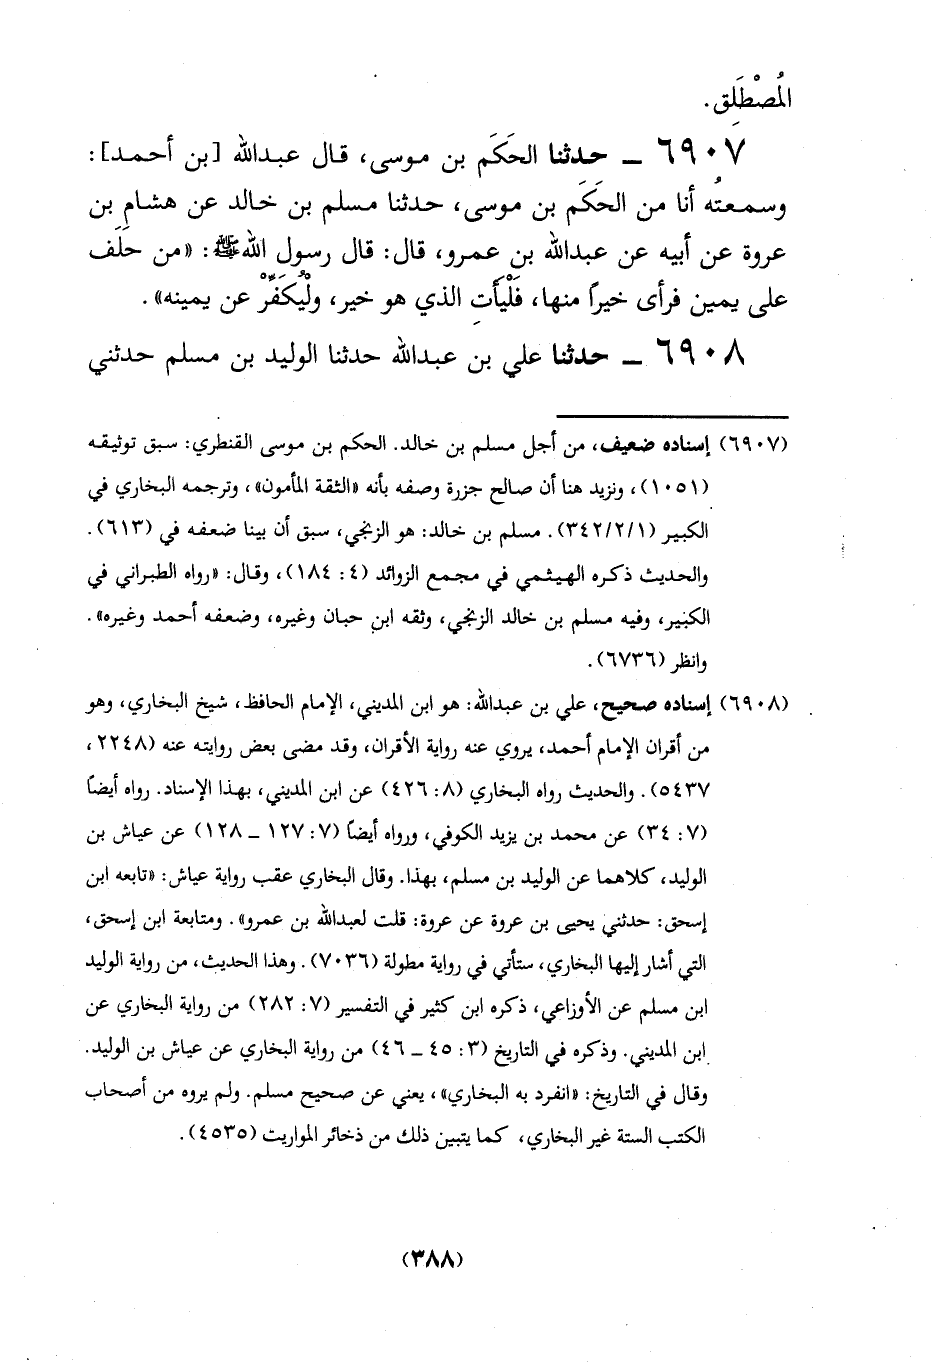 المُصْطَلِق.
٦٩٠٧ ــ حدثنا الحَكَم بن موسى، قال عبدالله [بن أحمد]:
وسمعتُه أنا من الحَكَم بن موسى، حدثنا مسلم بن خالد عن هشام بن
عروة عن أبيه عن عبدالله بن عمرو، قال: قال رسول الله ﷺ: «من حَلَف
على يمين فرأى خيراً منها، فَلْيَأْتِ الذي هو خير، ولْيُكَفِّرْ عن يمينه».
٦٩٠٨ ــ حدثنا علي بن عبدالله حدثنا الوليد بن مسلم حدثني
(٦٩٠٧) إسناده ضعيف، من أجل مسلم بن خالد. الحكم بن موسى القنطري: سبق توثيقه
(١٠٥١)، ونزيد هنا أن صالح جزرة وصفه بأنه «الثقة المأمون»، وترجمه البخاري في
الكبير (٣٤٢/٢/١). مسلم بن خالد: هو الزنجي، سبق أن بينا ضعفه في (٦١٣).
والحديث ذكره الهيثمي في مجمع الزوائد (٤: ١٨٤)، وقال: «رواه الطبراني في
الكبير، وفيه مسلم بن خالد الزنجي، وثقه ابن حبان وغيره، وضعفه أحمد وغيره».
وانظر (٦٧٣٦).
(٦٩٠٨) إسناده صحيح، علي بن عبدالله: هو ابن المديني، الإمام الحافظ، شيخ البخاري، وهو
من أقران الإمام أحمد، يروي عنه رواية الأقران، وقد مضى بعض روايته عنه (٢٢٤٨،
٥٤٣٧). والحديث رواه البخاري (٨: ٤٢٦) عن ابن المديني، بهذا الإسناد. رواه أيضاً
(٧: ٣٤) عن محمد بن يزيد الكوفي، ورواه أيضاً (٧: ١٢٧ ــ ١٢٨) عن عياش بن
الوليد، كلاهما عن الوليد بن مسلم، بهذا. وقال البخاري عقب رواية عياش: «تابعه ابن
إسحق: حدثني يحيى بن عروة عن عروة: قلت لعبدالله بن عمرو». ومتابعة ابن إسحق،
التي أشار إليها البخاري، ستأتي في رواية مطولة (٧٠٣٦). وهذا الحديث، من رواية الوليد
ابن مسلم عن الأوزاعي، ذكره ابن كثير في التفسير (٧: ٢٨٢) من رواية البخاري عن
ابن المديني. وذكره في التاريخ (٣: ٤٥ ــ ٤٦) من رواية البخاري عن عياش بن الوليد.
وقال في التاريخ: «انفرد به البخاري»، يعني عن صحيح مسلم. ولم يروه من أصحاب
الكتب الستة غير البخاري، كما يتبين ذلك من ذخائر المواريث (٤٥٣٥).
(٣٨٨)